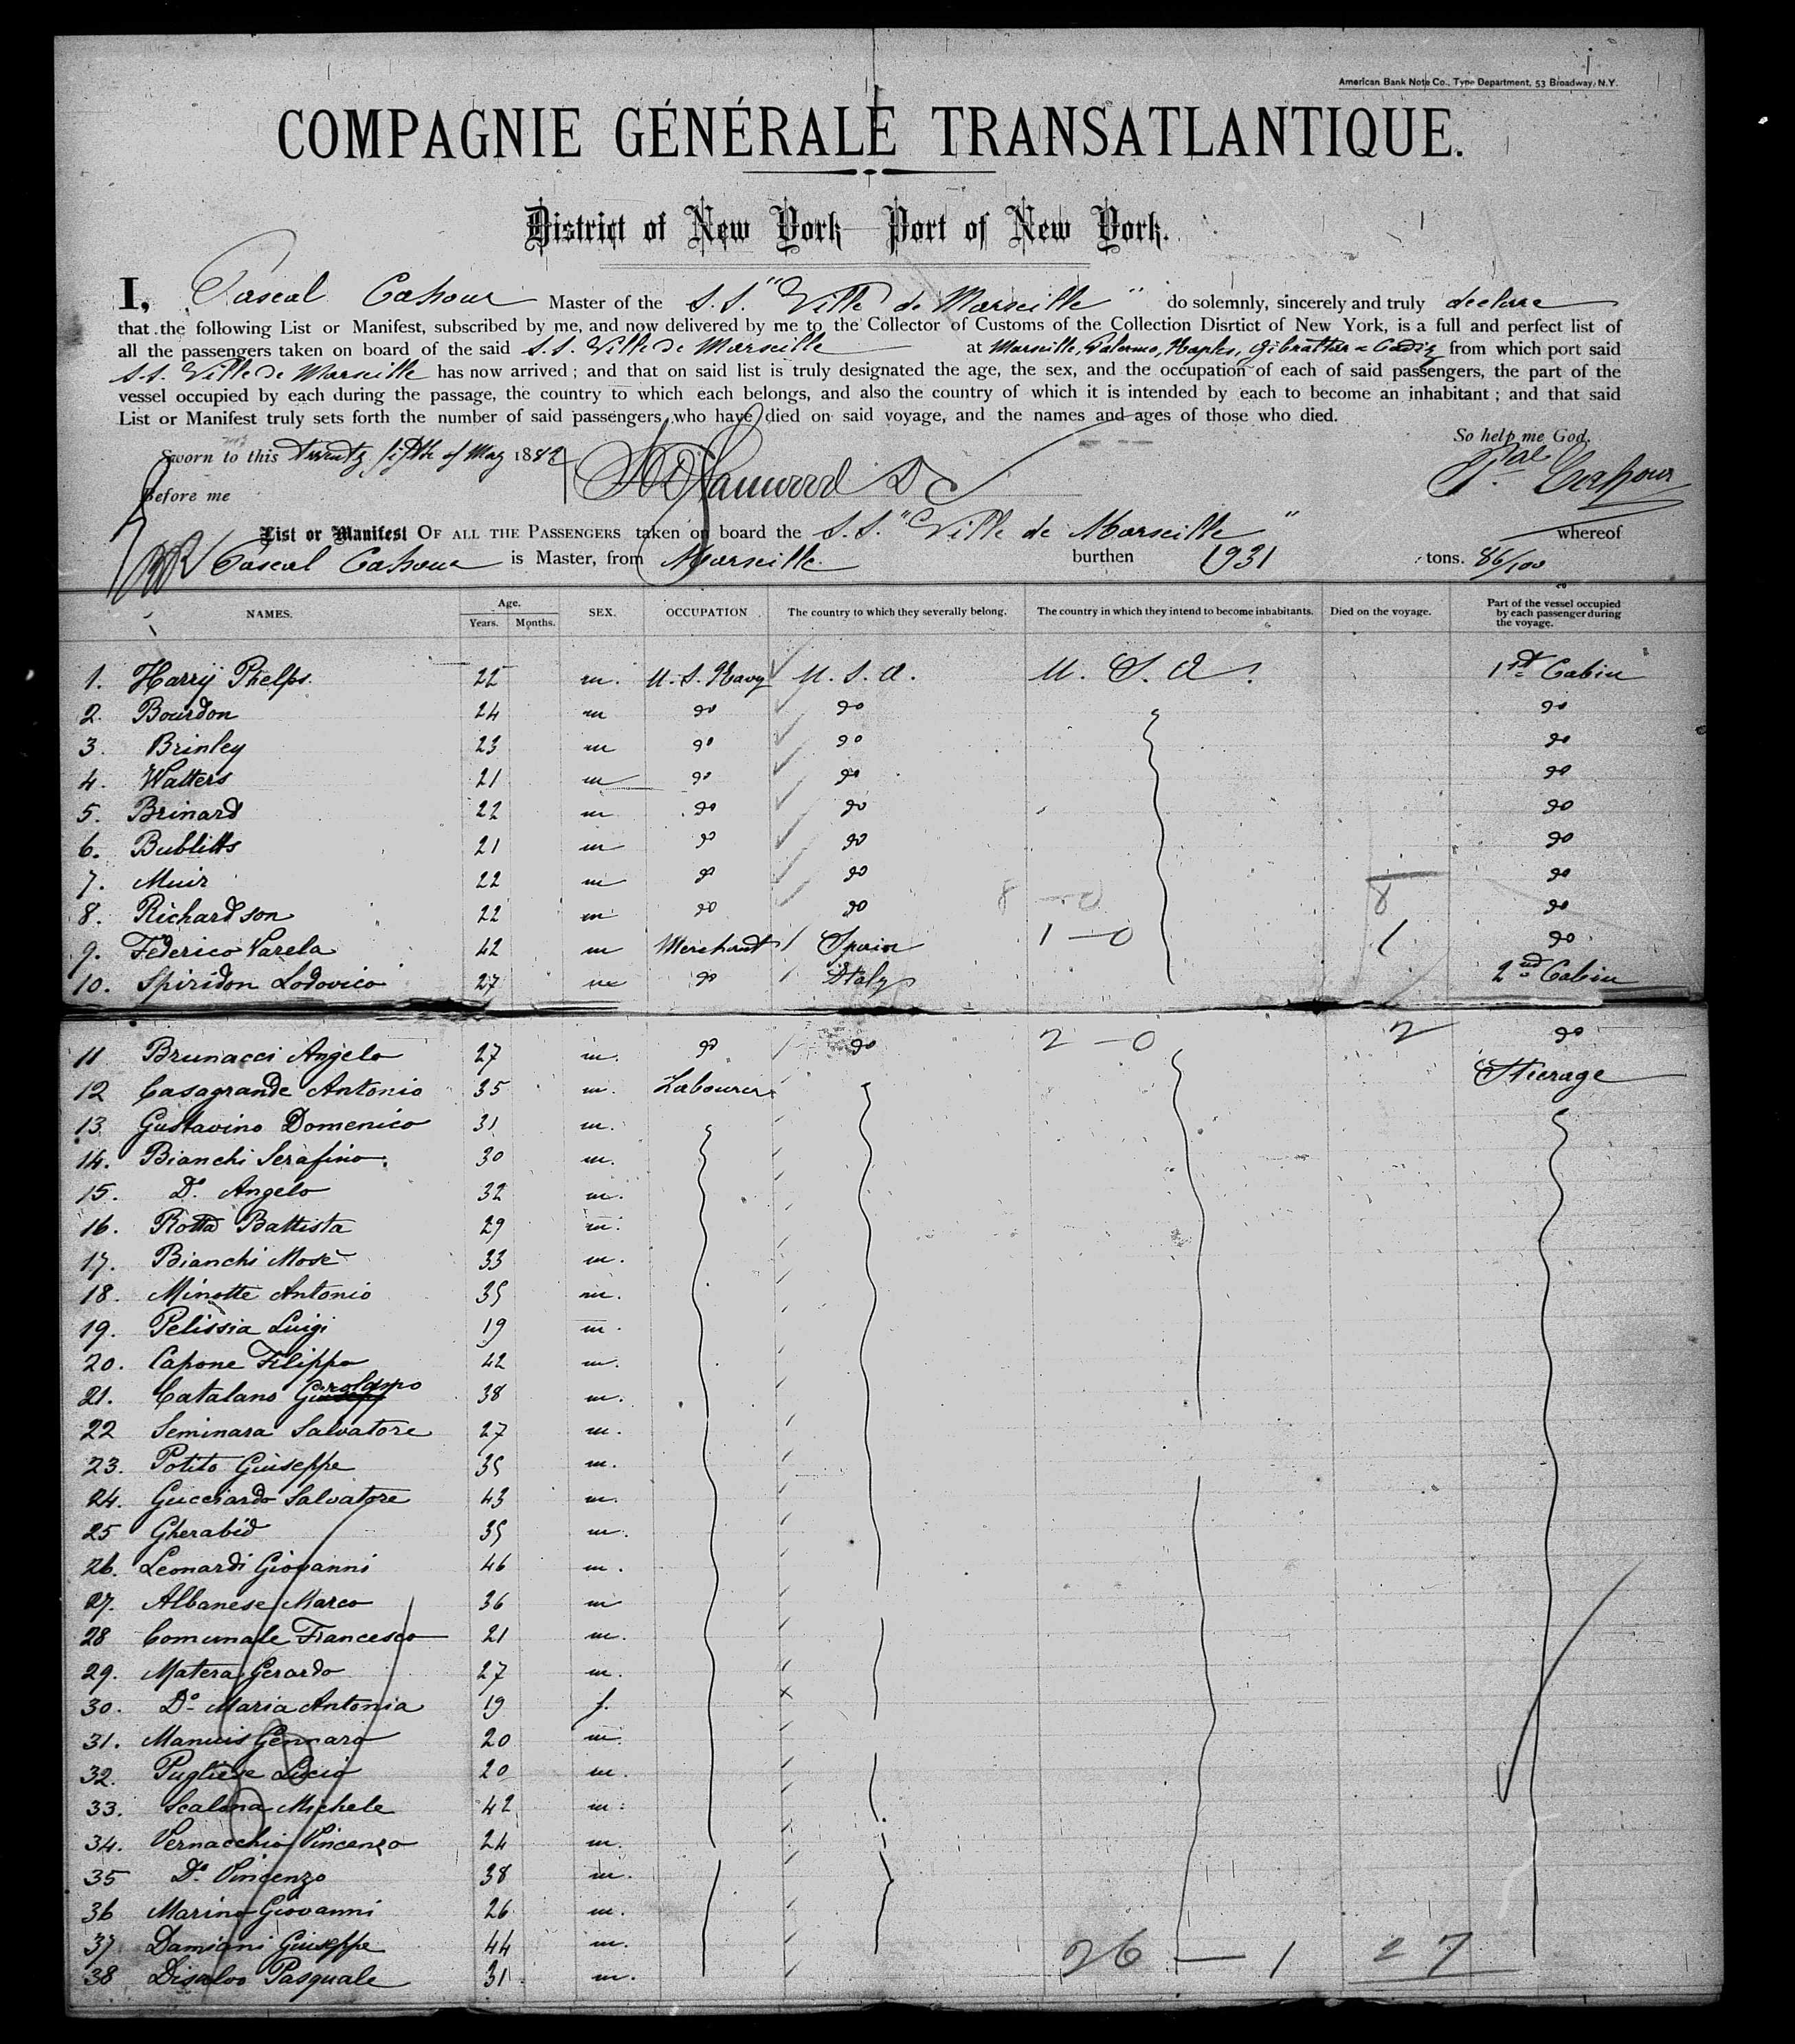 American Bank Note Co., Type Department, 53 Broadway, N.Y.
COMPAGNIE GÉNÉRALE TRANSATLANTIQUE.
District of New York Port of New York.
I, Pascal Cahour Master of the S.S. "Ville de Marseille" do solemnly, sincerely and truly declare
that the following List or Manifest, subscribed by me, and now delivered by me to the Collector of Customs of the Collection Disrtict of New York, is a full and perfect list of
all the passengers taken on board of the said S.S. Ville de Marseille at Marseille, Palermo, Naples, Gibraltar & Cadiz from which port said
S.S. Ville de Marseille has now arrived; and that on said list is truly designated the age, the sex, and the occupation of each of said passengers, the part of the
vessel occupied by each during the passage, the country to which each belongs, and also the country of which it is intended by each to become an inhabitant; and that said
List or Manifest truly sets forth the number of said passengers who have died on said voyage, and the names and ages of those who died.
So help me God.
Sworn to this twenty fifth of May 1882
Before me
Pcal Cahour
List or Manifest OF ALL THE PASSENGERS taken on board the S.S. "Ville de Marseille" whereof
Pascal Cahour is Master, from Marseille burthen 1931 tons. 86/100
NAMES. Age. Years. Months. SEX. OCCUPATION The country to which they severally belong. The country in which they intend to become inhabitants. Died on the voyage. Part of the vessel occupied by each passenger during the voyage.
1. Harry Phelps. 22 m. U.S. Navy U.S.A. U.S.A. 1st Cabin
2. Bourdon 24 m do do do
3. Brinley 23 m do do do
4. Watters 21 m do do do
5. Brinard 22 m do do do
6. Bublitts 21 m do do do
7. Muir 22 m do do do
8. Richardson 22 m do do 8 — 0 8 do
9. Federico Varela 42 m Merchant Spain 1 — 0 1 do
10. Spiridon Lodovico 27 m do Italy 2nd Cabin
11 Brunacci Angelo 27 m. do do 2 — 0 2 do
12 Casagrande Antonio 35 m. Labourer Stierage
13 Gustavino Domenico 31 m.
14. Bianchi Serafino. 30 m.
15. Do. Angelo 32 m.
16. Rotta Battista 29 m.
17. Bianchi Mosè 33 m.
18. Minotte Antonio 35 m.
19. Pelissia Luigi 19 m.
20. Capone Filippo 42 m.
21. Catalano Girolamo 38 m.
22 Seminara Salvatore 27 m.
23. Potito Giuseppe 35 m.
24. Gucciardo Salvatore 43 m.
25 Gherabid 35 m.
26. Leonardi Giovanni 46 m.
27. Albanese Marco 36 m
28 Comunale Francesco 21 m.
29. Matera Gerardo 27 m.
30. Do. Maria Antonia 19 f.
31. Manuis Gennaro 20 m.
32. Pugliese Lucio 20 m.
33. Scalona Michele 42 m.
34. Vernacchio Vincenzo 24 m.
35 Do. Vincenzo 38 m.
36 Marino Giovanni 26 m.
37 Damiani Giuseppe 44 m. 26 — 1 27
38 Disalvo Pasquale 31 m.